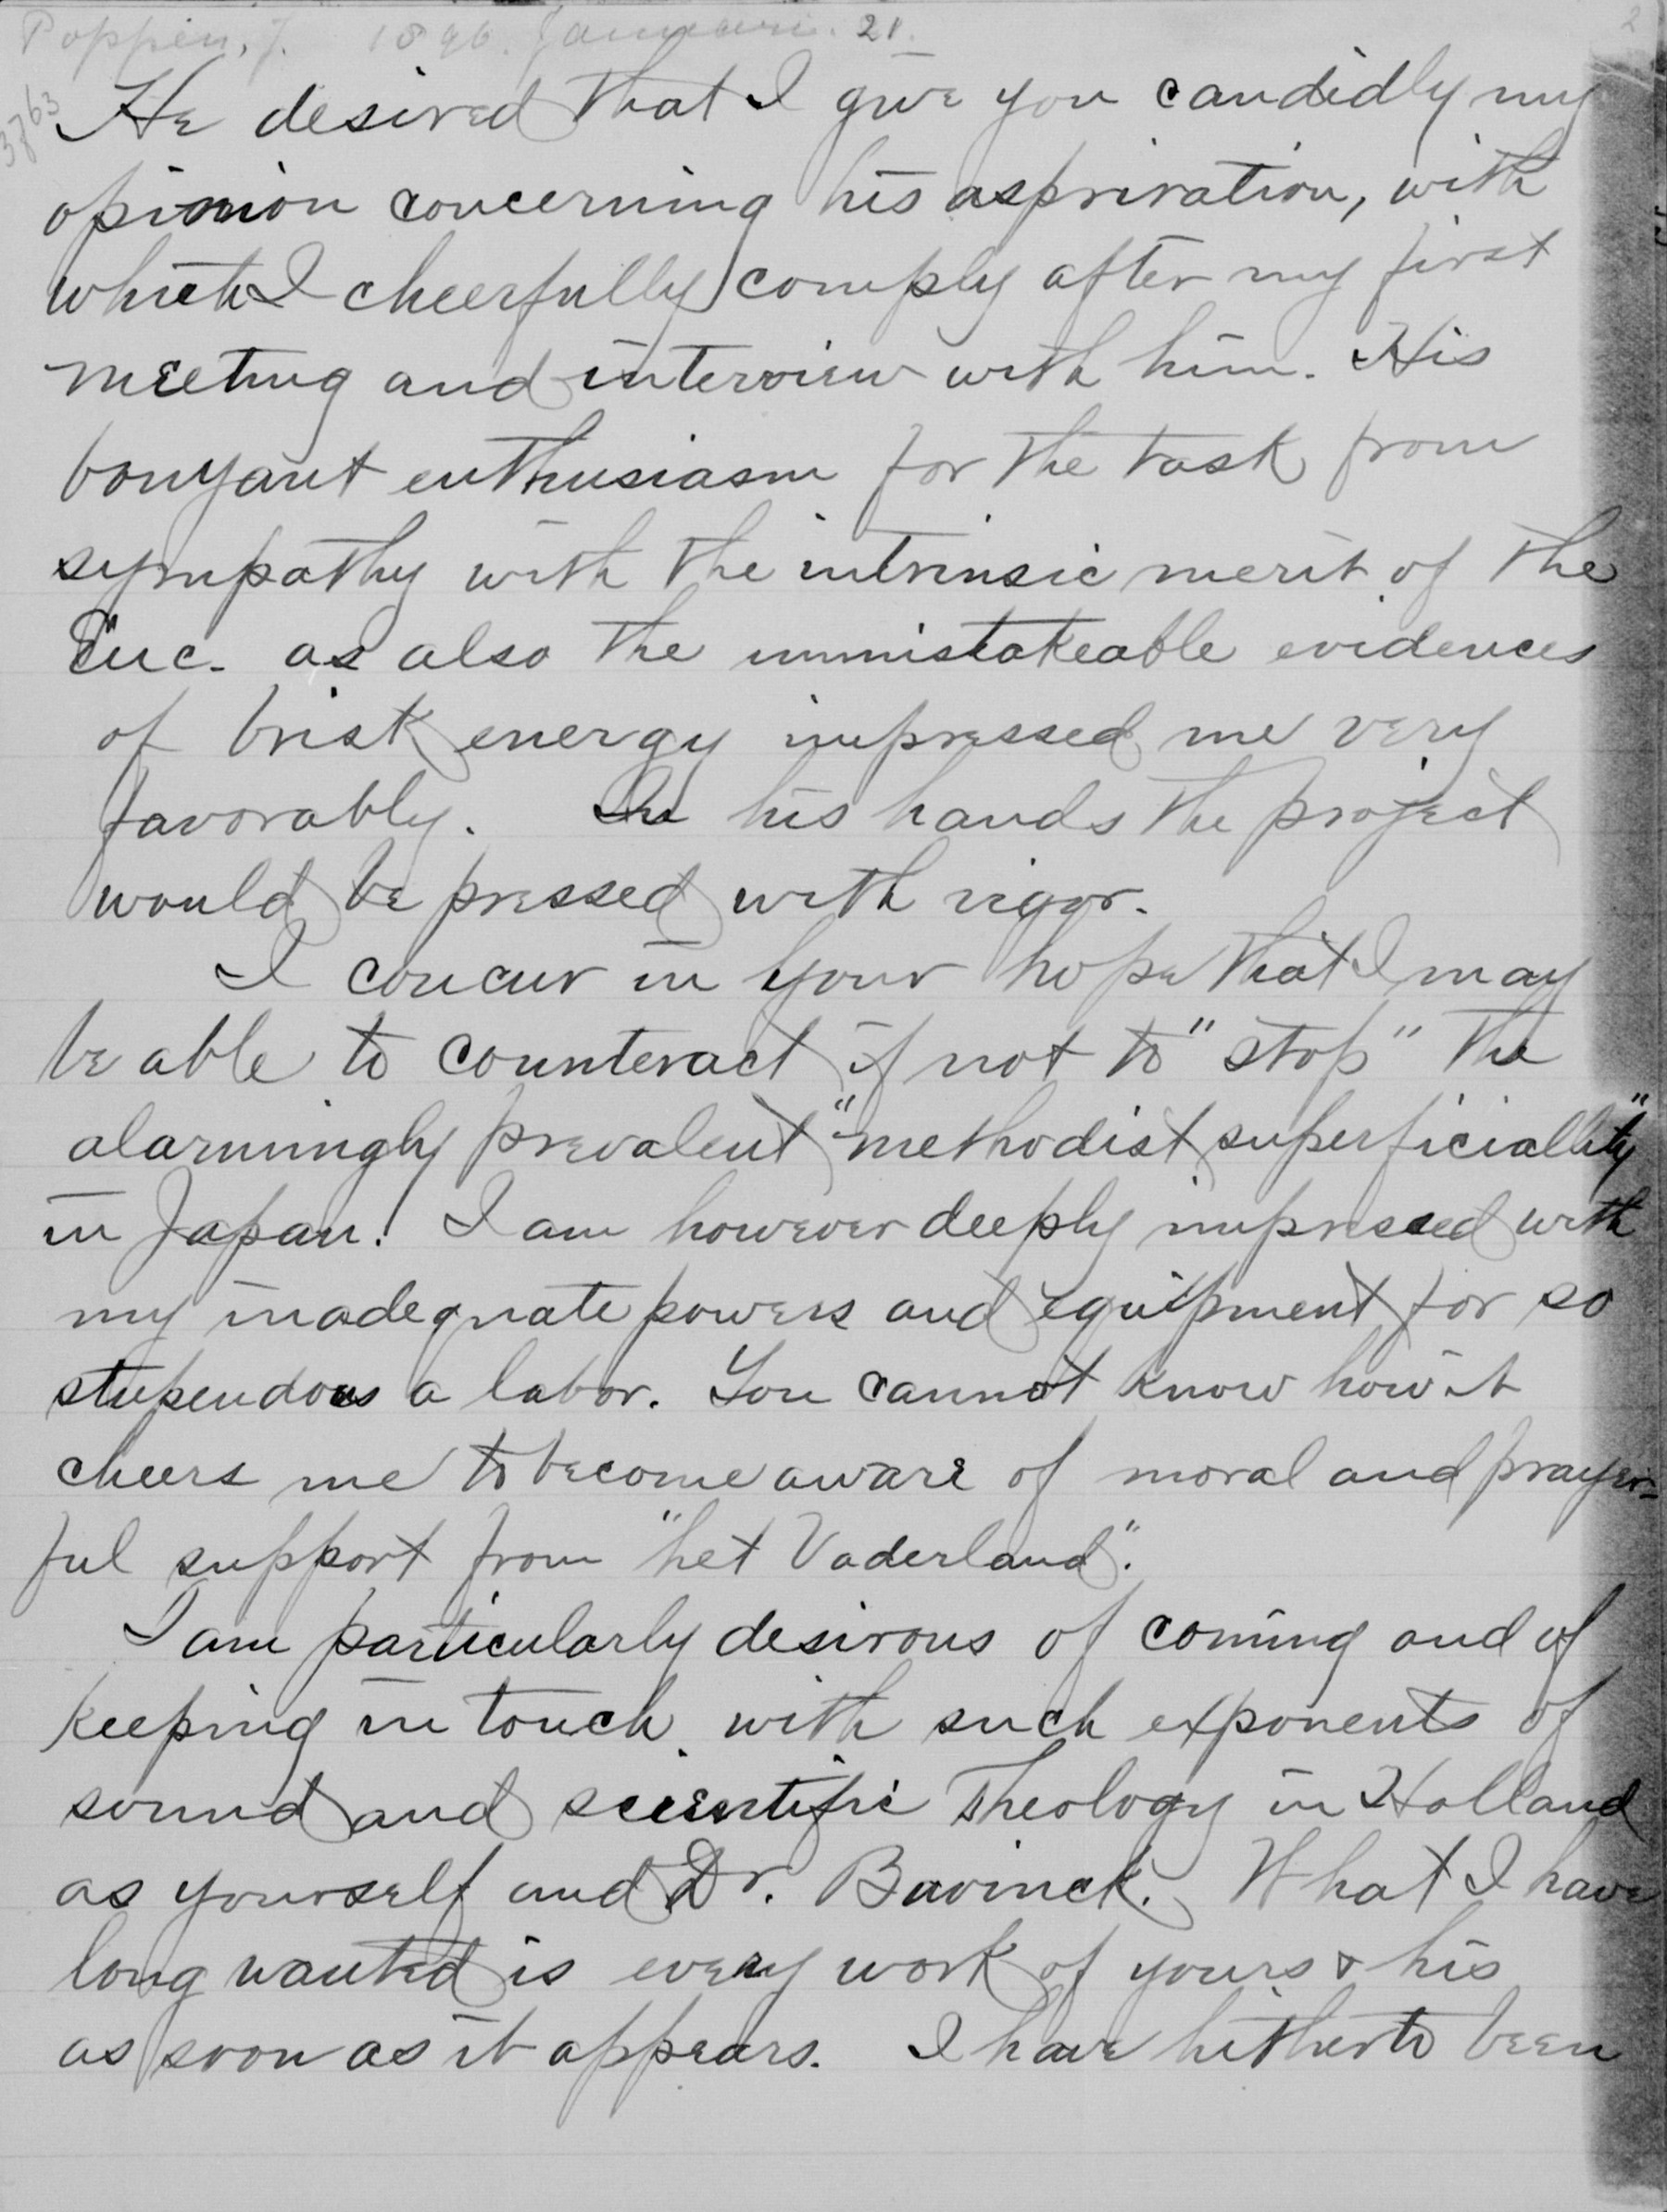 Poppen, J. 1896. Januari. 21.
2
3763
He desired that I give you candidly my
opinion concerning his aspriration, with
which I cheerfully comply after my first
meeting and interview with him. His
bouyant enthusiasm for the task from
sympathy with the intrinsic merit of the
Enc. as also the unmistakeable evidences
of brisk energy impressed me very
favorably. In his hands the project
would be pressed with vigor.
I concur in your hope that I may
be able to counteract if not to "stop" the
alarmingly prevalent "methodist superficiallity"
in Japan! I am however deeply impressed with
my inadequate powers and equipment for so
stupendous a labor. You cannot know how it
cheers me to become aware of moral and prayer-
ful support from "het Vaderland".
I am particularly desirous of coming and of
keeping in touch with such exponents of
sound and scientific Theology in Holland
as yourself and Dr. Bavinck. What I have
long wanted is every work of yours & his
as soon as it appears. I have hitherto been